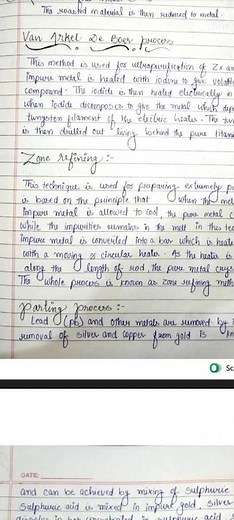 The roasted material is then reduced to metal.
Van Arkel De Boer process
This method is used for ultrapurification of Zr an
impure metal is heated with iodine to give volati
compound. The iodide is then heated electrically
when iodide decomposes to give the metal which dep
tungsten filament of the electric heater. The tun
is then drilled out living behind the pure titani
Zone refining :-
This technique is used for preparing extremely p
is based on the principle that when the mel
impure metal is allowed to cool, the pure metal c
while the impurities remains in the melt in this tec
impure metal is converted into a bar which is heate
with a moving or circular heater. As the heater is
along the length of rod, the pure metal crys
The whole process is known as zone refining meth
Parting process :-
Lead (pb) and other metals are removed by
removal of silver and copper from gold is
Sc
DATE:
and can be achieved by mixing of sulphuric
sulphuric acid is mixed in impure gold, silver
in sulphuric acid